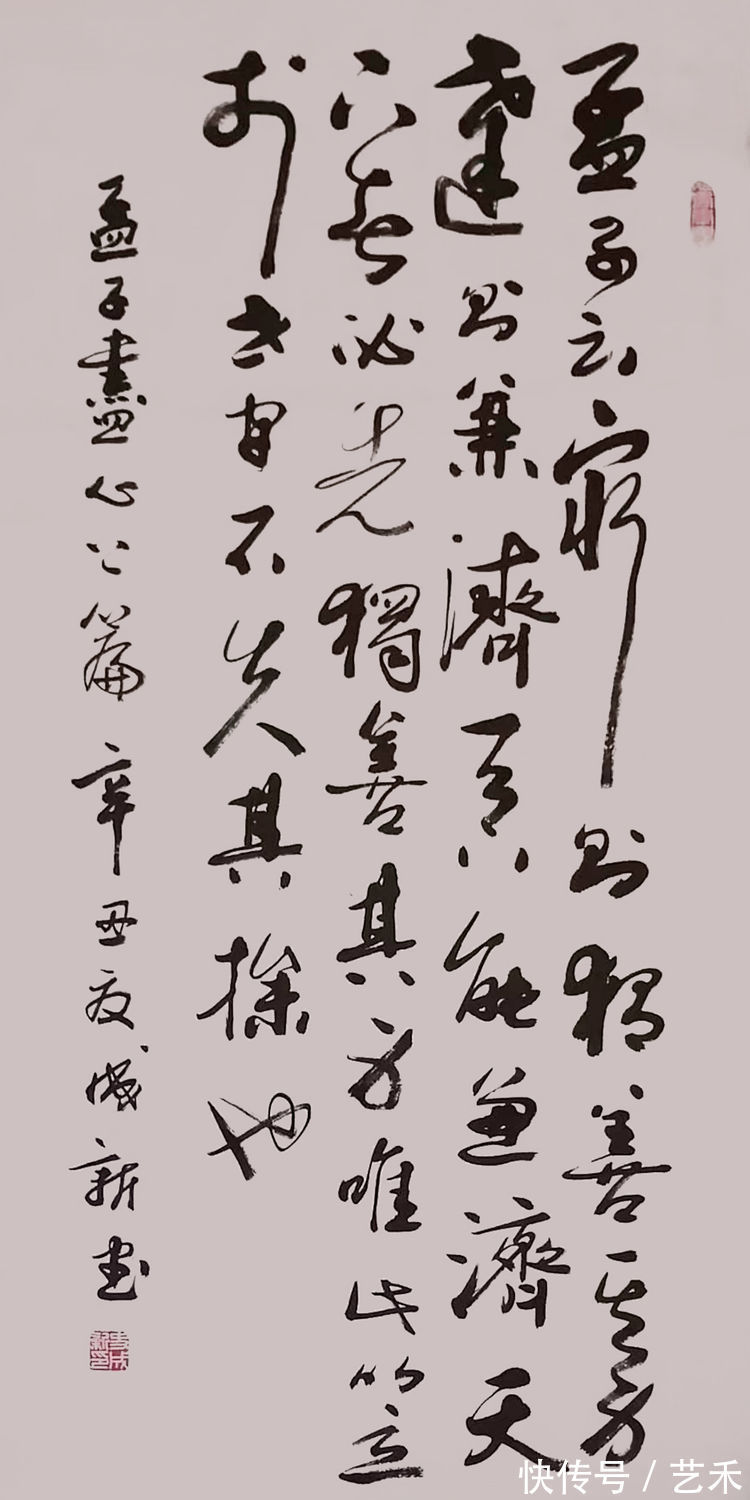 孟子云窮則獨善其身
達則兼濟天下能兼濟天
下者必先獨善其身唯此以立
於世間不失其操也
孟子盡心上篇 辛丑夏成新書
快传号 / 艺禾